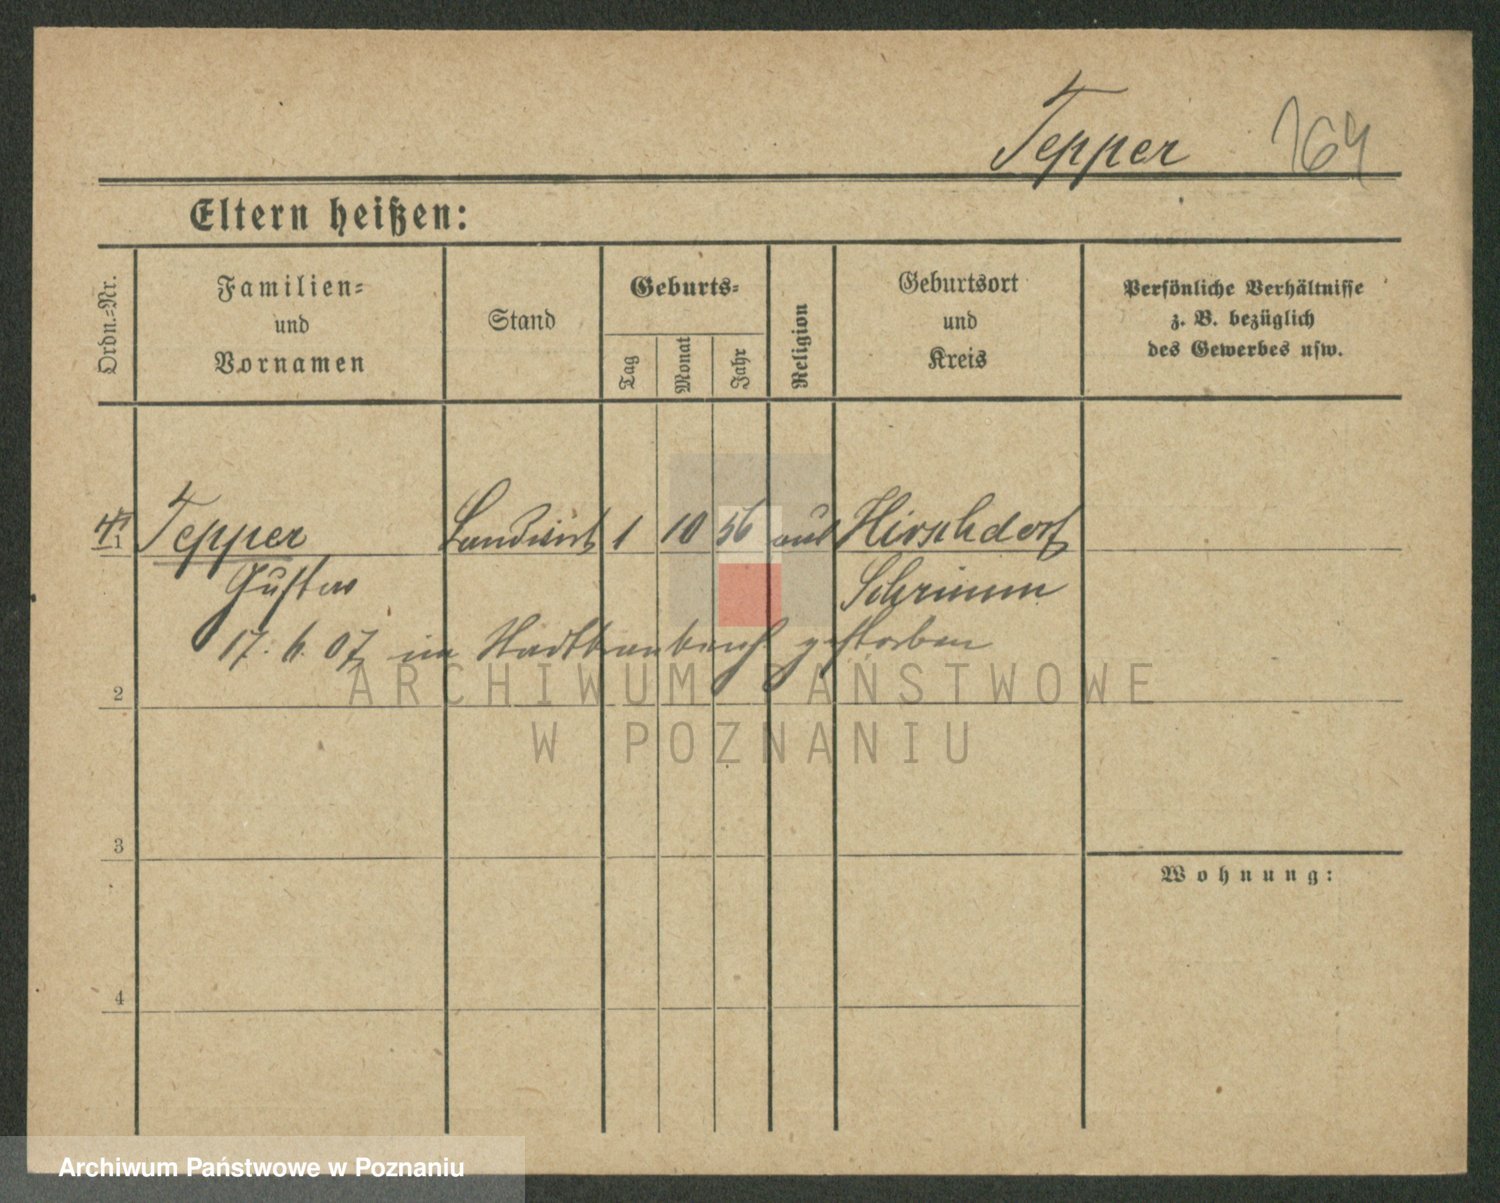 Tepper 164
Eltern heißen:
Ordn.-Nr.
Familien- und Vornamen
Stand
Geburts-
Tag
Monat
Jahr
Religion
Geburtsort und Kreis
Persönliche Verhältnisse
z. B. bezüglich
des Gewerbes usw.
1 Tepper Landwirt 1 10 56 Hirschdorf
Gustav Schrimm
17. 6. 07 im Stadtkrankenh gestorben
2
3
4
Wohnung:
ARCHIWUM PAŃSTWOWE
W POZNANIU
Archiwum Państwowe w Poznaniu